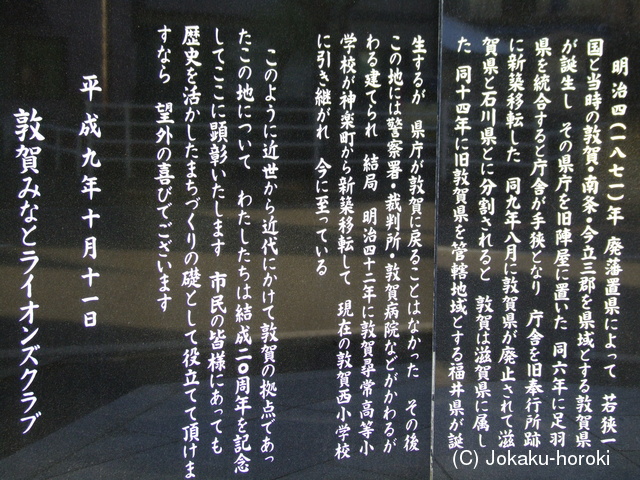 明治四(一八七一)年 廃藩置県によって 若狭一
国と当時の敦賀・南条・今立三郡を県域とする敦賀県
が誕生し その県庁を旧陣屋に置いた 同六年に足羽
県を統合すると庁舎が手狭となり 庁舎を旧奉行所跡
に新築移転した 同九年八月に敦賀県が廃止されて滋
賀県と石川県とに分割されると 敦賀は滋賀県に属し
た 同十四年に旧敦賀県を管轄地域とする福井県が誕
生するが 県庁が敦賀に戻ることはなかった その後
この地には警察署・裁判所・敦賀病院などがかわるが
わる建てられ 結局 明治四十二年に敦賀尋常高等小
学校が神楽町から新築移転して 現在の敦賀西小学校
に引き継がれ 今に至っている
このように近世から近代にかけて敦賀の拠点であっ
たこの地について わたしたちは結成二〇周年を記念
してここに顕彰いたします 市民の皆様にあっても
歴史を活かしたまちづくりの礎として役立てて頂けま
すなら 望外の喜びでございます
平成九年十月十一日
敦賀みなとライオンズクラブ
(C) Jokaku-horoki